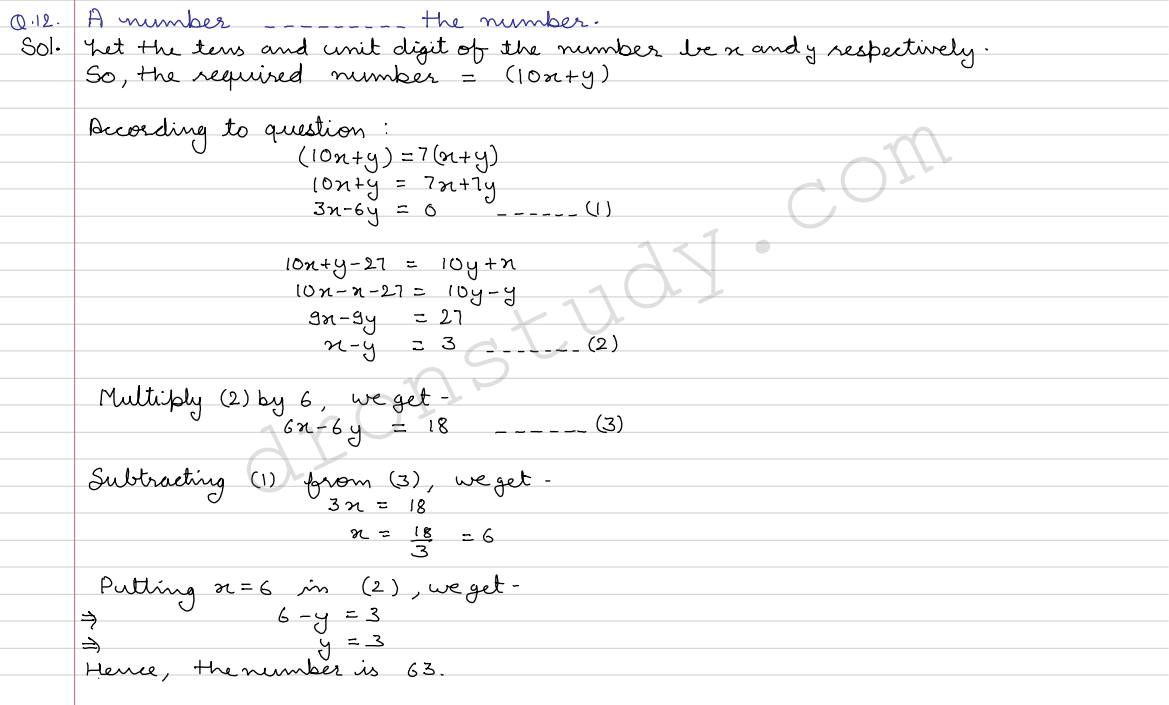 Q.12. A number --------- the number.
Sol. Let the tens and unit digit of the number be x and y respectively.
So, the required number = (10x+y)
According to question :
(10x+y) = 7(x+y)
10x+y = 7x+7y
3x-6y = 0 ------ (1)
10x+y-27 = 10y+x
10x-x-27 = 10y-y
9x-9y = 27
x-y = 3 ------- (2)
Multiply (2) by 6, we get -
6x-6y = 18 ------ (3)
Subtracting (1) from (3), we get -
3x = 18
x = 18/3 = 6
Putting x=6 in (2), we get -
⇒ 6-y = 3
⇒ y = 3
Hence, the number is 63.
dronstudy.com